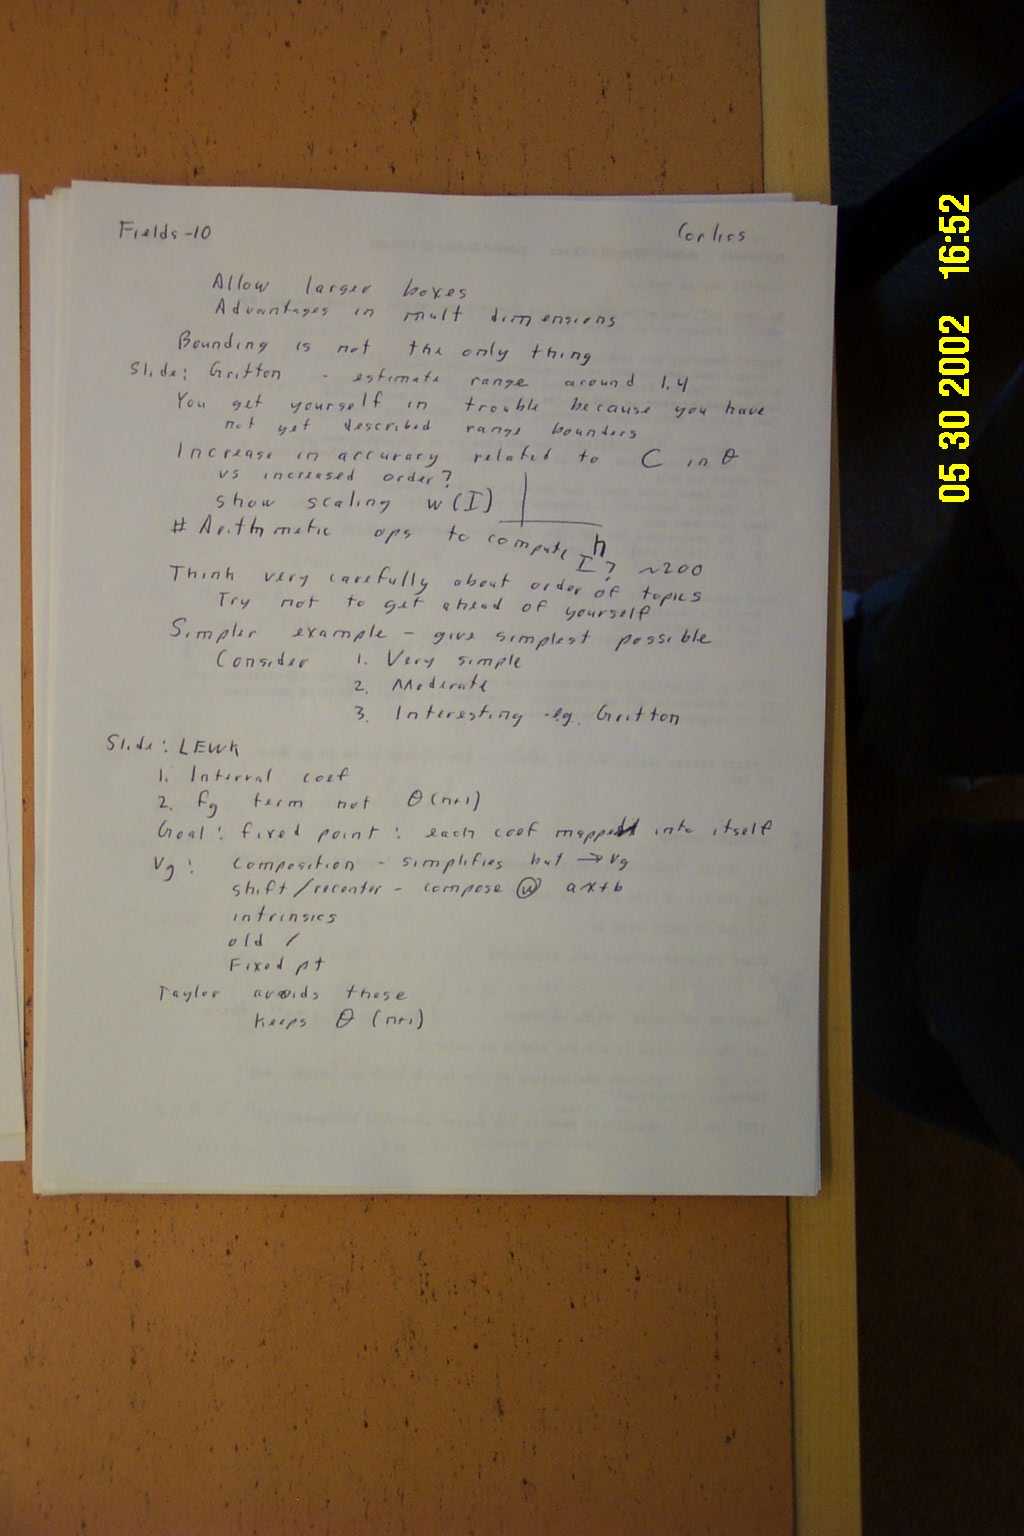 Fields-10 Corliss
Allow larger boxes
Advantages in mult dimensions
Bounding is not the only thing
Slide: Gritton - estimate range around 1.4
You get yourself in trouble because you have
not yet described range bounders
Increase in accuracy related to C in θ
vs increased order?
show scaling w(I)
h
# Arithmetic ops to compute I? ~200
Think very carefully about order of topics
Try not to get ahead of yourself
Simpler example - give simplest possible
Consider 1. Very simple
2. Moderate
3. Interesting - eg. Gritton
Slide: LEWK
1. Interval coef
2. fg term not θ(n+1)
Goal: fixed point: each coef mapped into itself
Vg: Composition - simplifies but → vg
shift/recenter - compose w ax+b
intrinsics
old /
Fixed pt
Taylor avoids these
keeps θ (n+1)
05 30 2002 16:52